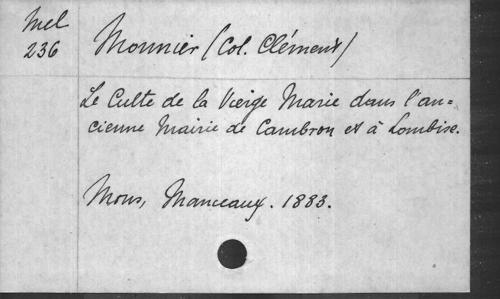 Mel
236
Monnier (Col. Clément)
Le Culte de la Vierge Marie dans l'an=
cienne Mairie de Cambron et à Lombise.
Mons, Manceaux. 1883.